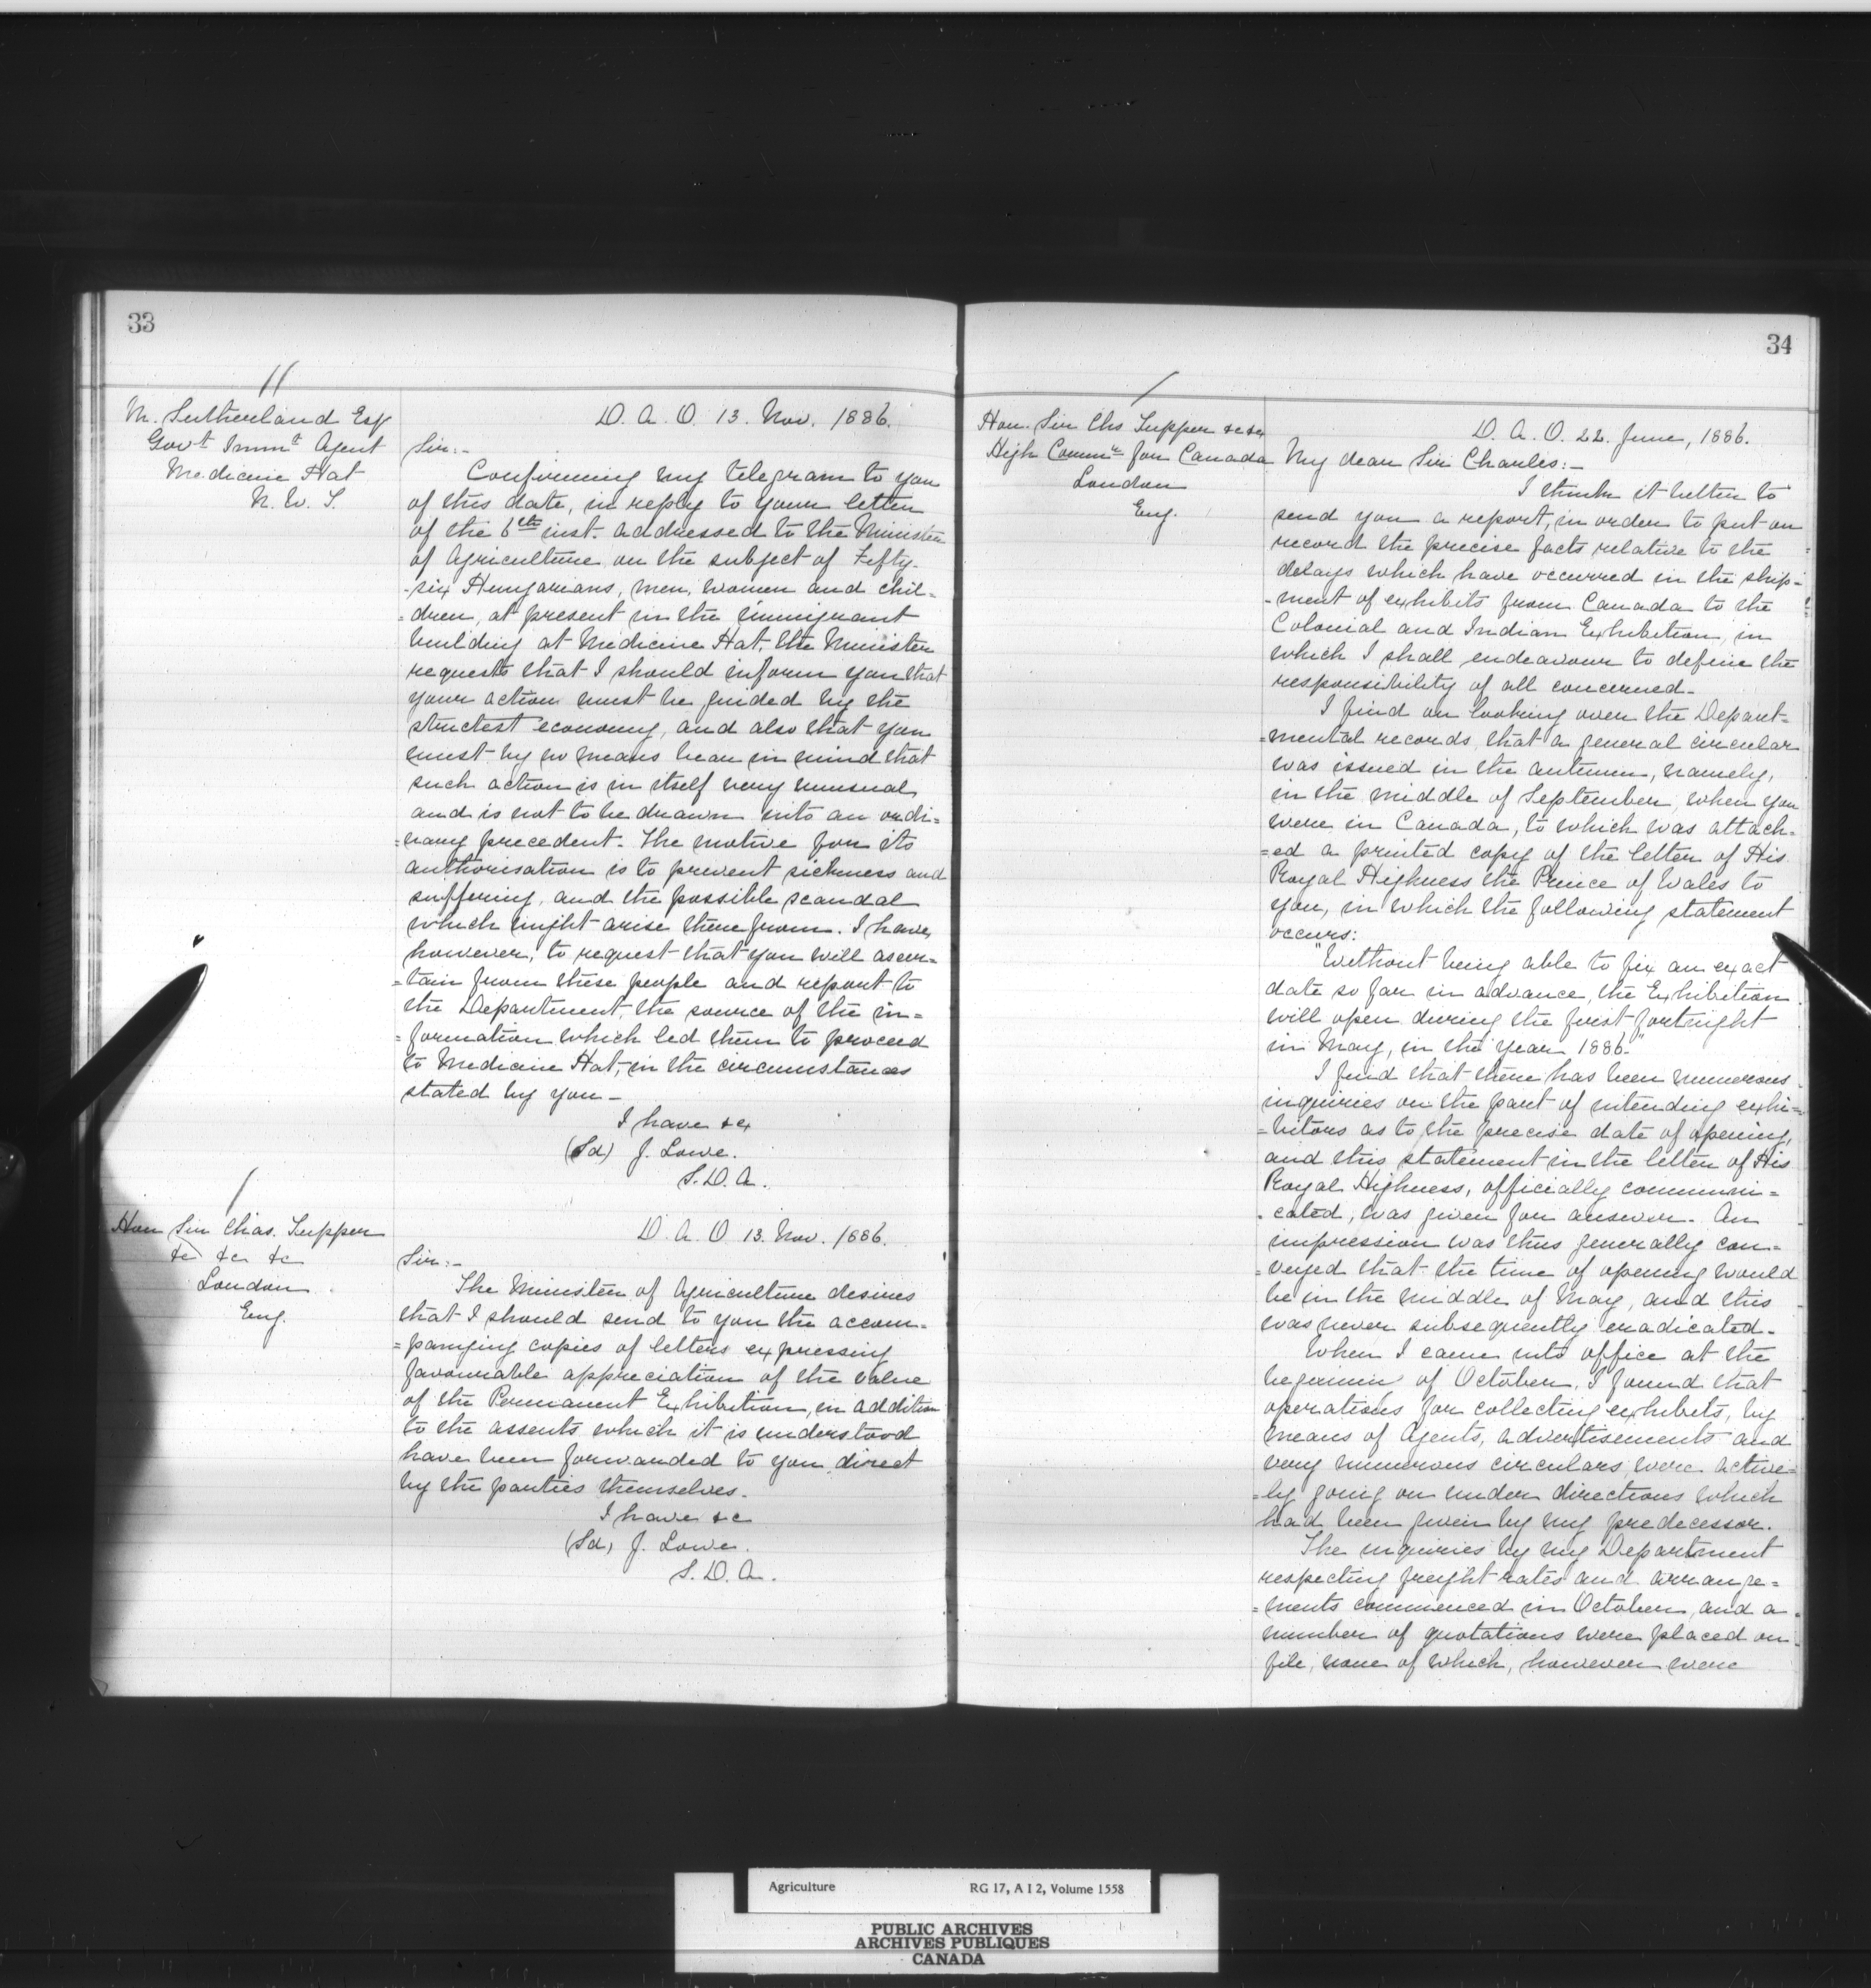 33
11
M. Sutherland Esq
Govt Immt Agent
Medicine Hat
N. W. T.
D. A. O. 13. Nov. 1886.
Sir:-
Confirming my telegram to you
of this date, in reply to your letter
of the 6th inst. addressed to the Minister
of Agriculture on the subject of Fifty-
-six Hungarians, men, women and chil=
=dren, at present in the immigrant
building at Medicine Hat, the Minister
requests that I should inform you that
your action must be guided by the
strictest economy, and also that you
must by no means bear in mind that
such action is in itself very unusual,
and is not to be drawn into an ordi=
=nary precedent. The motive for its
authorisation is to prevent sickness and
suffering, and the possible scandal
which might arise therefrom. I have,
however, to request that you will ascer=
=tain from these people and report to
the Department, the source of the in=
=formation which led them to proceed
to Medicine Hat, in the circumstances
stated by you -
I have &c
(Sd) J. Lowe.
S. D. A.
/
Hon Sir Chas. Tupper
&c &c &c
London
Eng.
D. A. O 13. Nov. 1886.
Sir:-
The Minister of Agriculture desires
that I should send to you the accom=
=panying copies of letters expressing
favourable appreciation of the value
of the Permanent Exhibition, in addition
to the assents which it is understood
have been forwarded to you direct
by the parties themselves.
I have &c
(Sd) J. Lowe.
S. D. A.
34
/
Hon. Sir Chs Tupper &c &c
High Commr for Canada
London
Eng.
D. A. O. 22. June, 1886.
My dear Sir Charles:-
I think it better to
send you a report, in order to put on
record the precise facts relative to the
delays which have occurred in the ship-
-ment of exhibits from Canada to the
Colonial and Indian Exhibition, in
which I shall endeavour to define the
responsibility of all concerned.
I find on looking over the Depart=
=mental records that a general circular
was issued in the autumn, namely,
in the middle of September, when you
were in Canada, to which was attach=
=ed a printed copy of the letter of His
Royal Highness the Prince of Wales to
you, in which the following statement
occurs:
"Without being able to fix an exact
date so far in advance, the Exhibition
will open during the first fortnight
in May, in the year 1886."
I find that there has been numerous
inquiries on the part of intending exhi=
=bitors as to the precise date of opening,
and this statement in the letter of His
Royal Highness, officially communi=
=cated, was given for answer. An
impression was thus generally con=
=veyed that the time of opening would
be in the middle of May, and this
was never subsequently eradicated.
When I came into office at the
beginning of October, I found that
operations for collecting exhibits, by
means of Agents, advertisements and
very numerous circulars, were active=
=ly going on under directions which
had been given by my predecessor.
The inquiries by my Department
respecting freight rates and arrange=
=ments commenced in October, and a
number of quotations were placed on
file, none of which, however were
Agriculture RG 17, A I 2, Volume 1558
PUBLIC ARCHIVES
ARCHIVES PUBLIQUES
CANADA